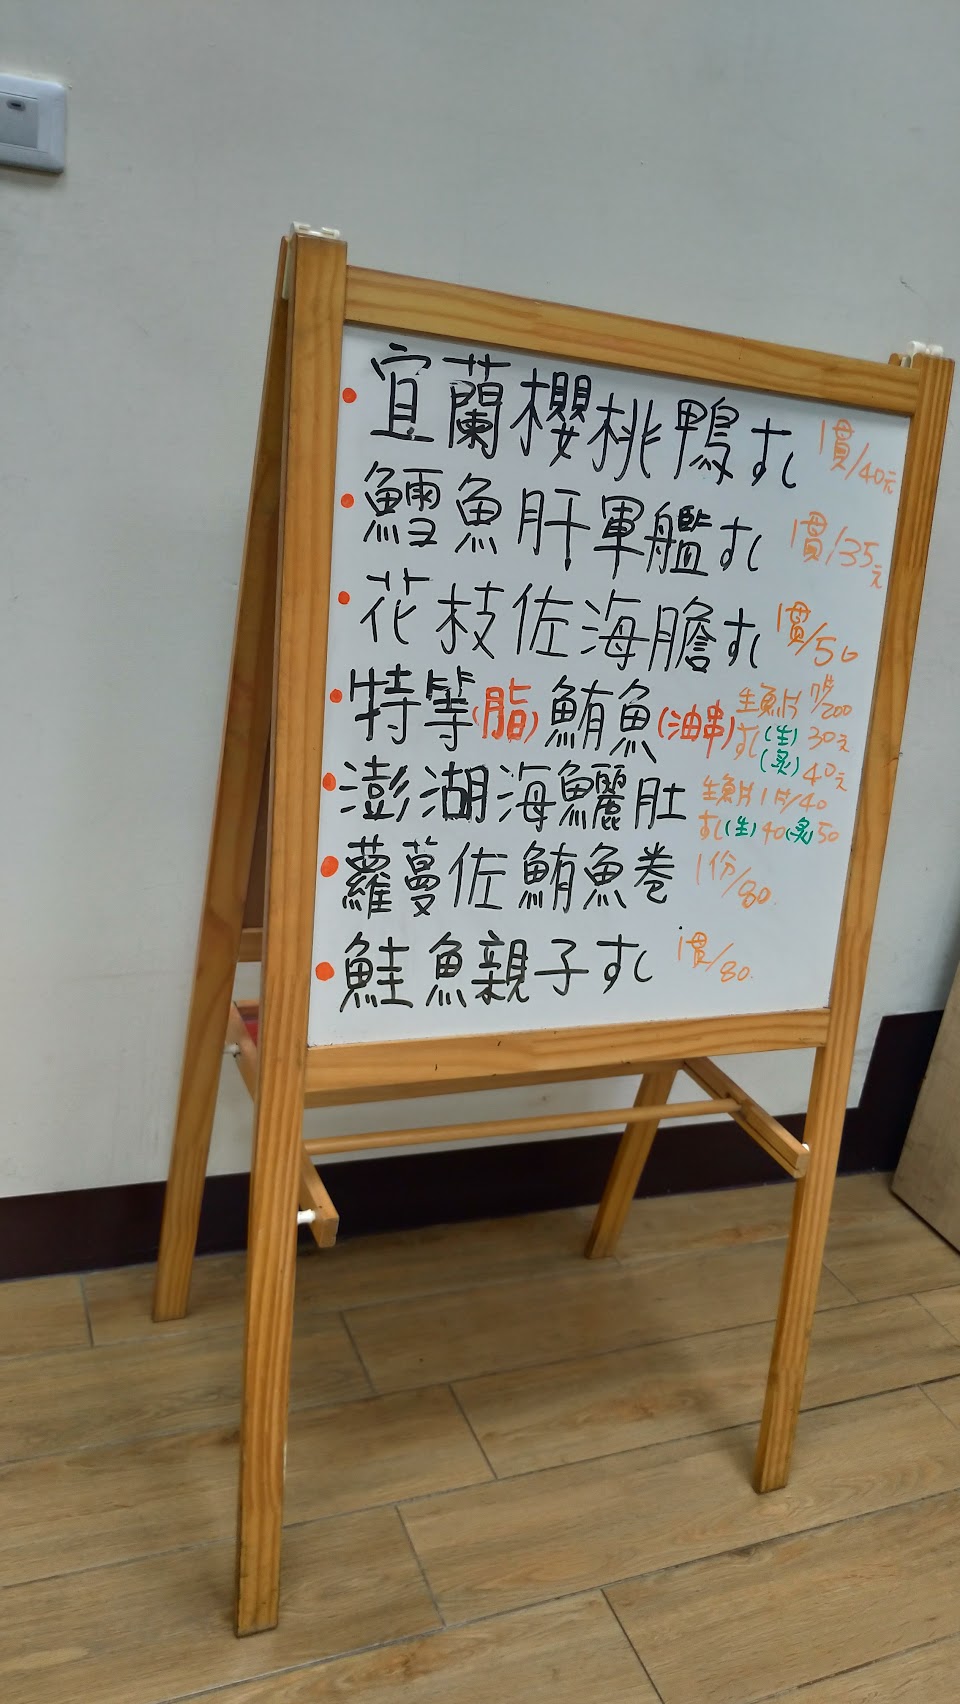 宜蘭櫻桃鴨すし 1貫/40元
鱈魚肝軍艦すし 1貫/35元
花枝佐海膽すし 1貫/50
特等(脂)鮪魚(油串) 生魚片 7片/200
すし(生)30元
(炙)40元
澎湖海鱺肚 生魚片1片/40
すし(生)40(炙)50
蘿蔓佐鮪魚卷 1份/80
鮭魚親子すし 1貫/80